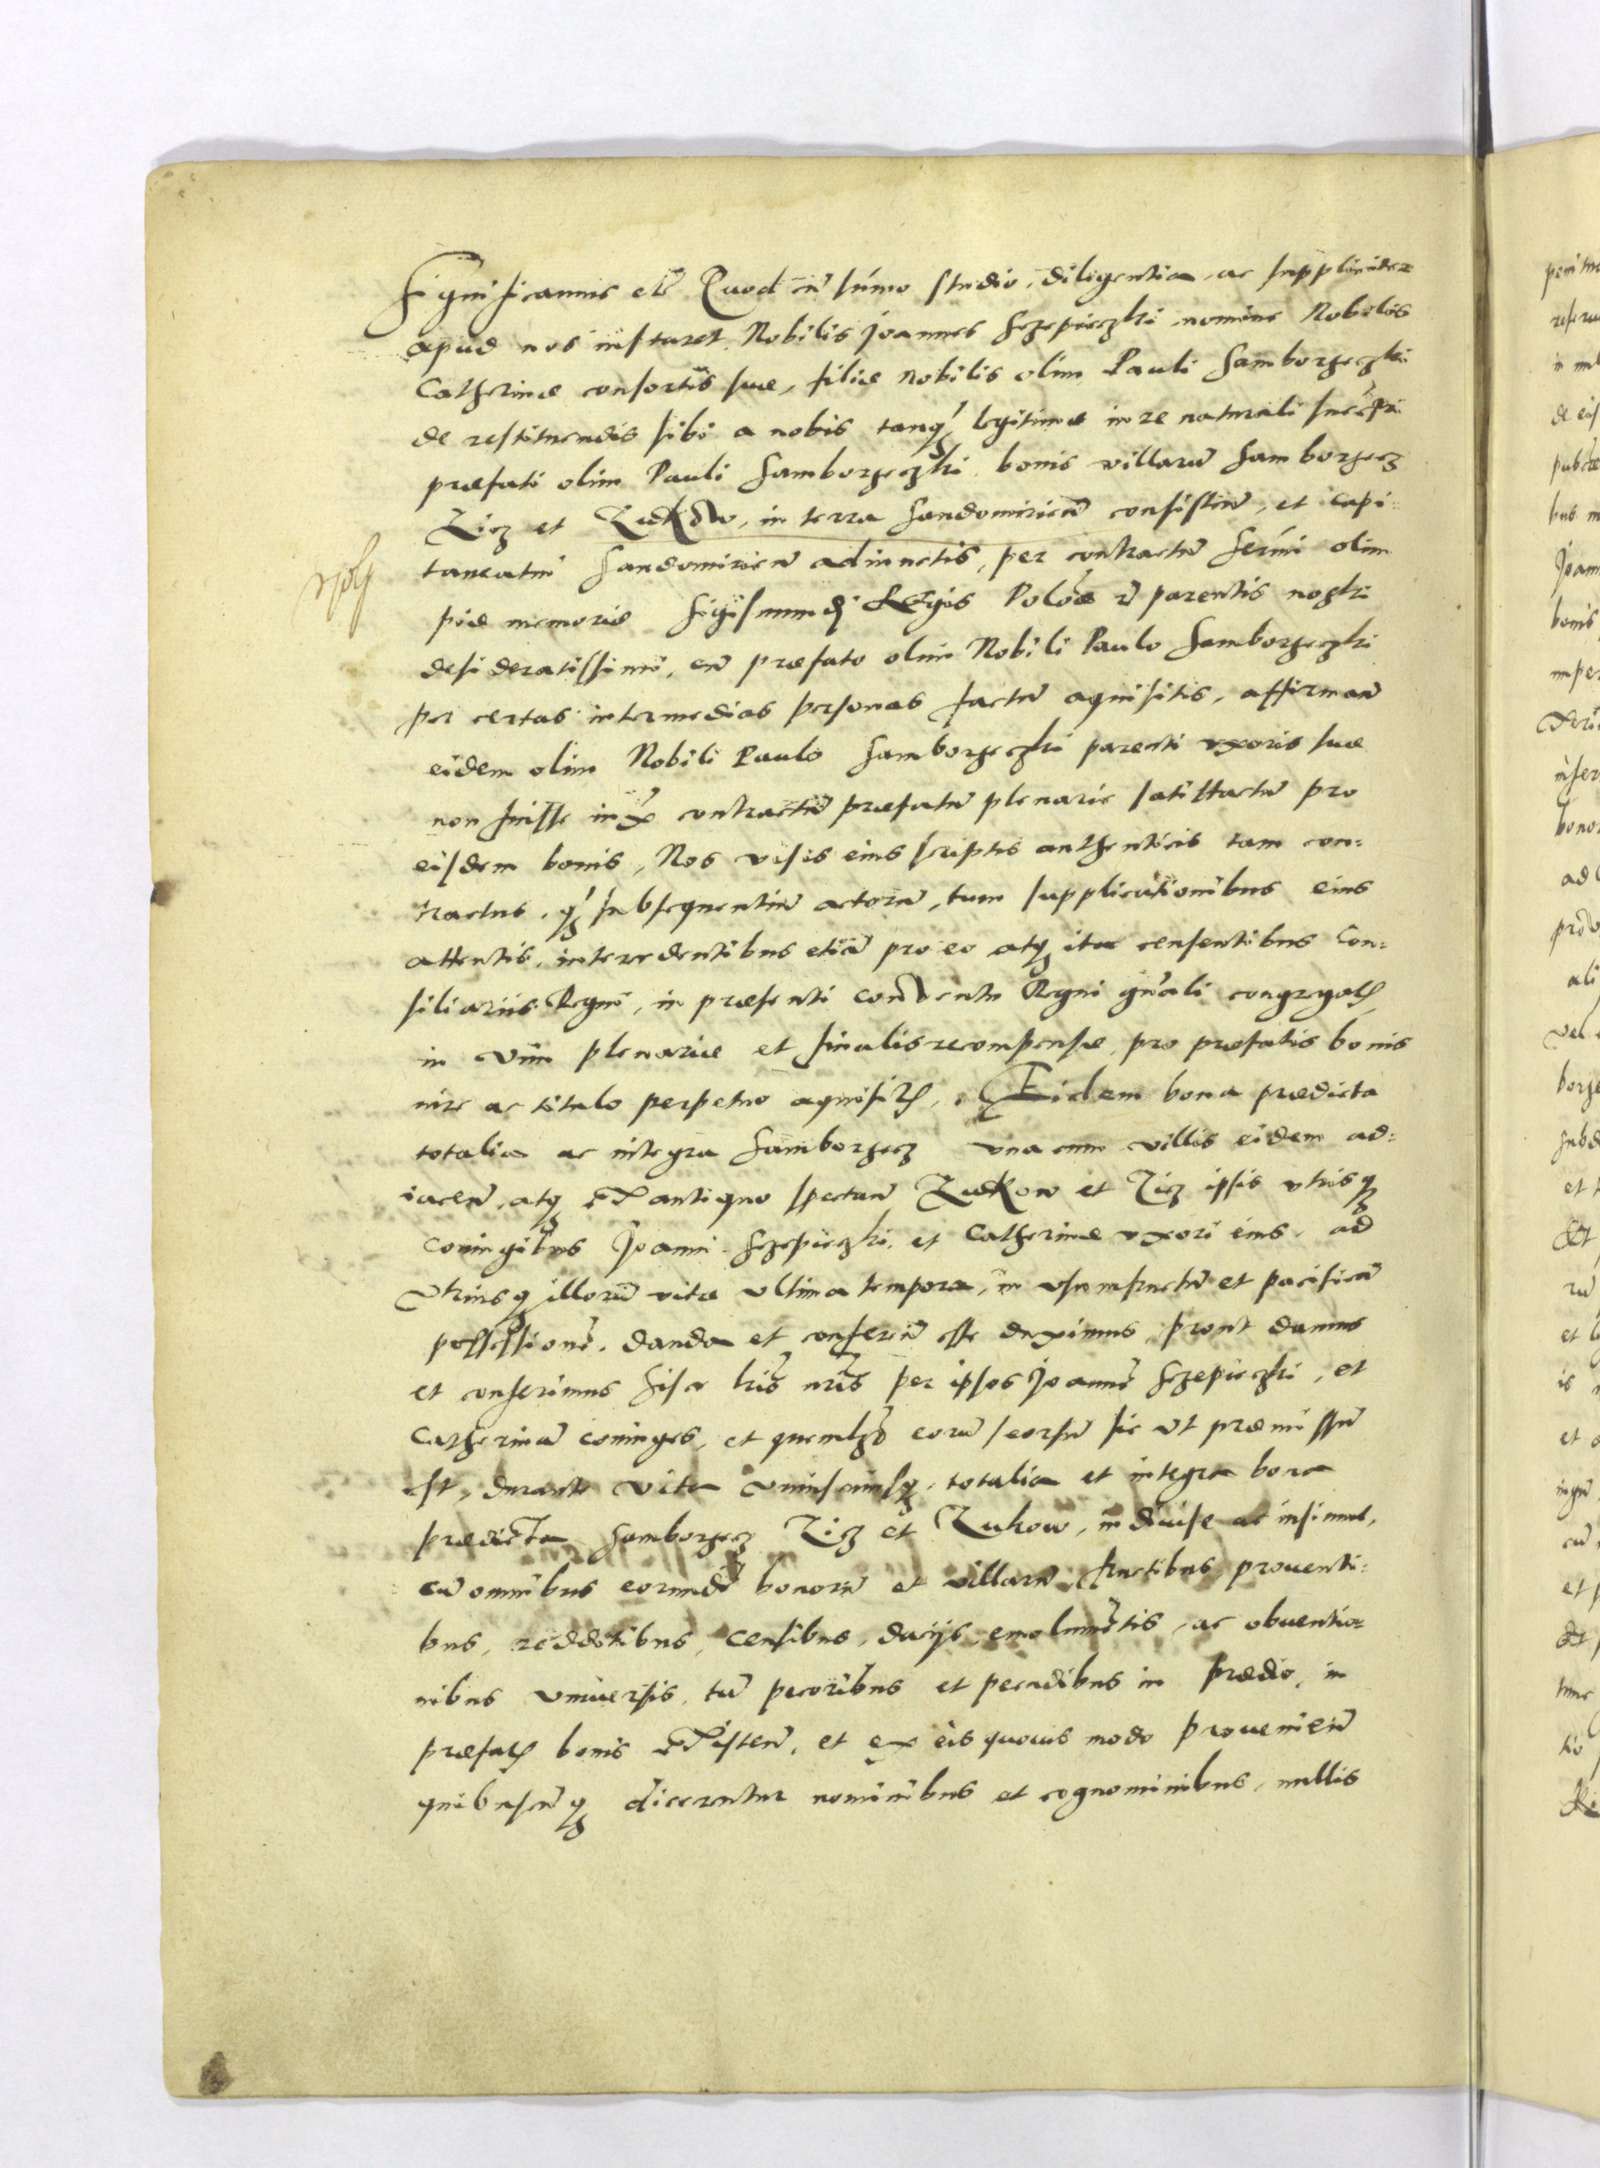 Significamus etc̃ Quod cũ sũmo studio, diligentia, ac suppliciter
apud nos instaret Nobilis Joannes Sczepieczki nomine Nobilis
Catherinæ consortis suæ, filiæ Nobilis olim Pauli Samborzeczki
de restituendis sibi a nobis tanq̃ legitimæ in re naturali
præfati olim Pauli Samborzeczki bonis villarũ Samborzecz
Zicz et Zukow, in terra Sandomirieñ consisteñ, et Capi:
taneatui Sandomirieñ adiunctis, per contractũ Serm̃i olim
piæ memoriæ Sigismundi Regis Poloñæ etc̃ parentis nostri
desideratissimi, cũ præfato olim Nobili Paulo Samborzeczki
per certas intermedias personas factũ aquisitis, affirmañ
eidem olim Nobili Paulo Samborzeczki parenti uxoris suæ
non fuisse iuxta contractũ præfatũ plenarie satisfactũ pro
eisdem bonis, Nos visis eius scriptis authenticis tam con:
tractus, q̃ subsequentiũ actorũ, tum supplicationibus eius
attentis, intercedentibus etiã pro eo atq̃ ita censentibus Con:
siliariis Regni, in præsenti conventu Regni gñali congregatis
in vim plenariæ et finalis recompensæ, pro præfatis bonis
iure ac titulo perpetuo aquisitis, Eidem bona prædicta
totalia ac integra Samborzecz una cum villis eidem ad:
iaceñ, atq̃ ex antiquo spectañ Zukow et Zicz ipsis utrisq̃
coniugibus Joanni Sczepieczki, et Catherinæ uxori eius, ad
Utriusq̃ illorũ vitæ ultima tempora, in usumfructũ et pacificã
possessionẽ, danda et confereñ esse duximus, prout damus
et conferimus hisce lr̃is nr̃is per ipsos Joannẽ Sczepieczki, et
Catherinã coniuges, et quemlibet eorũ seorsũ sic ut præmissũ
est, durante vita uniuscuiusq̃, totalia et integra bona
prædicta Samborzecz Zicz et Zukow, indivise ac insimul,
cũ omnibus eorundẽ bonorũ et villarũ, fructibus proventi:
bus, redditibus, censibus, daciis, emolumẽtis, ac obventio:
nibus universis, tũ pecoribus et pecudibus in prædio, in
præfatis bonis existeñ, et ex eis quovis modo provenieñ
quibuscũq̃ dicerentur nominibus et cognominibus, nullis